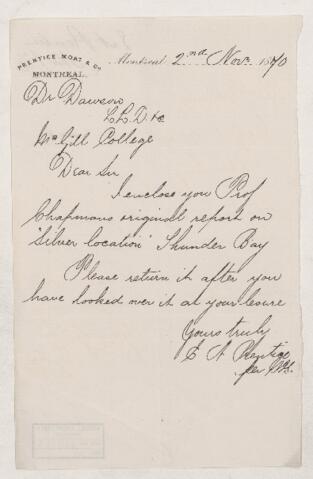 PRENTICE MOAT & Co
MONTREAL.
Montreal 2nd Nov. 1870
Dr Dawson
L.L.D. &c
McGill College
Dear Sir
I enclose you Prof
Chapmans original report on
"Silver location" Thunder Bay
Please return it after you
have looked over it at your lesure
Yours truly
E A Prentice
per